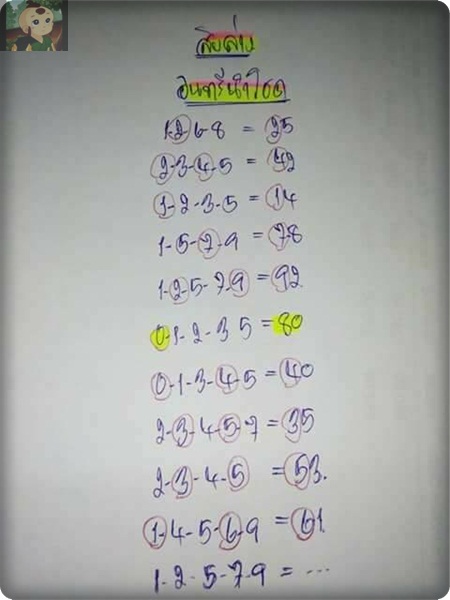 สิบล่าง
อินทรีนำโชค
1-2-6-8 = 25
2-3-4-5 = 42
1-2-3-5 = 14
1-5-7-9 = 78
1-2-5-7-9 = 92
0-1-2-3 5 = 80
0-1-3-4-5 = 40
2-3-4-5-7 = 35
2-3-4-5 = 53.
1-4-5-6-9 = 61
1-2-5-7-9 = ...